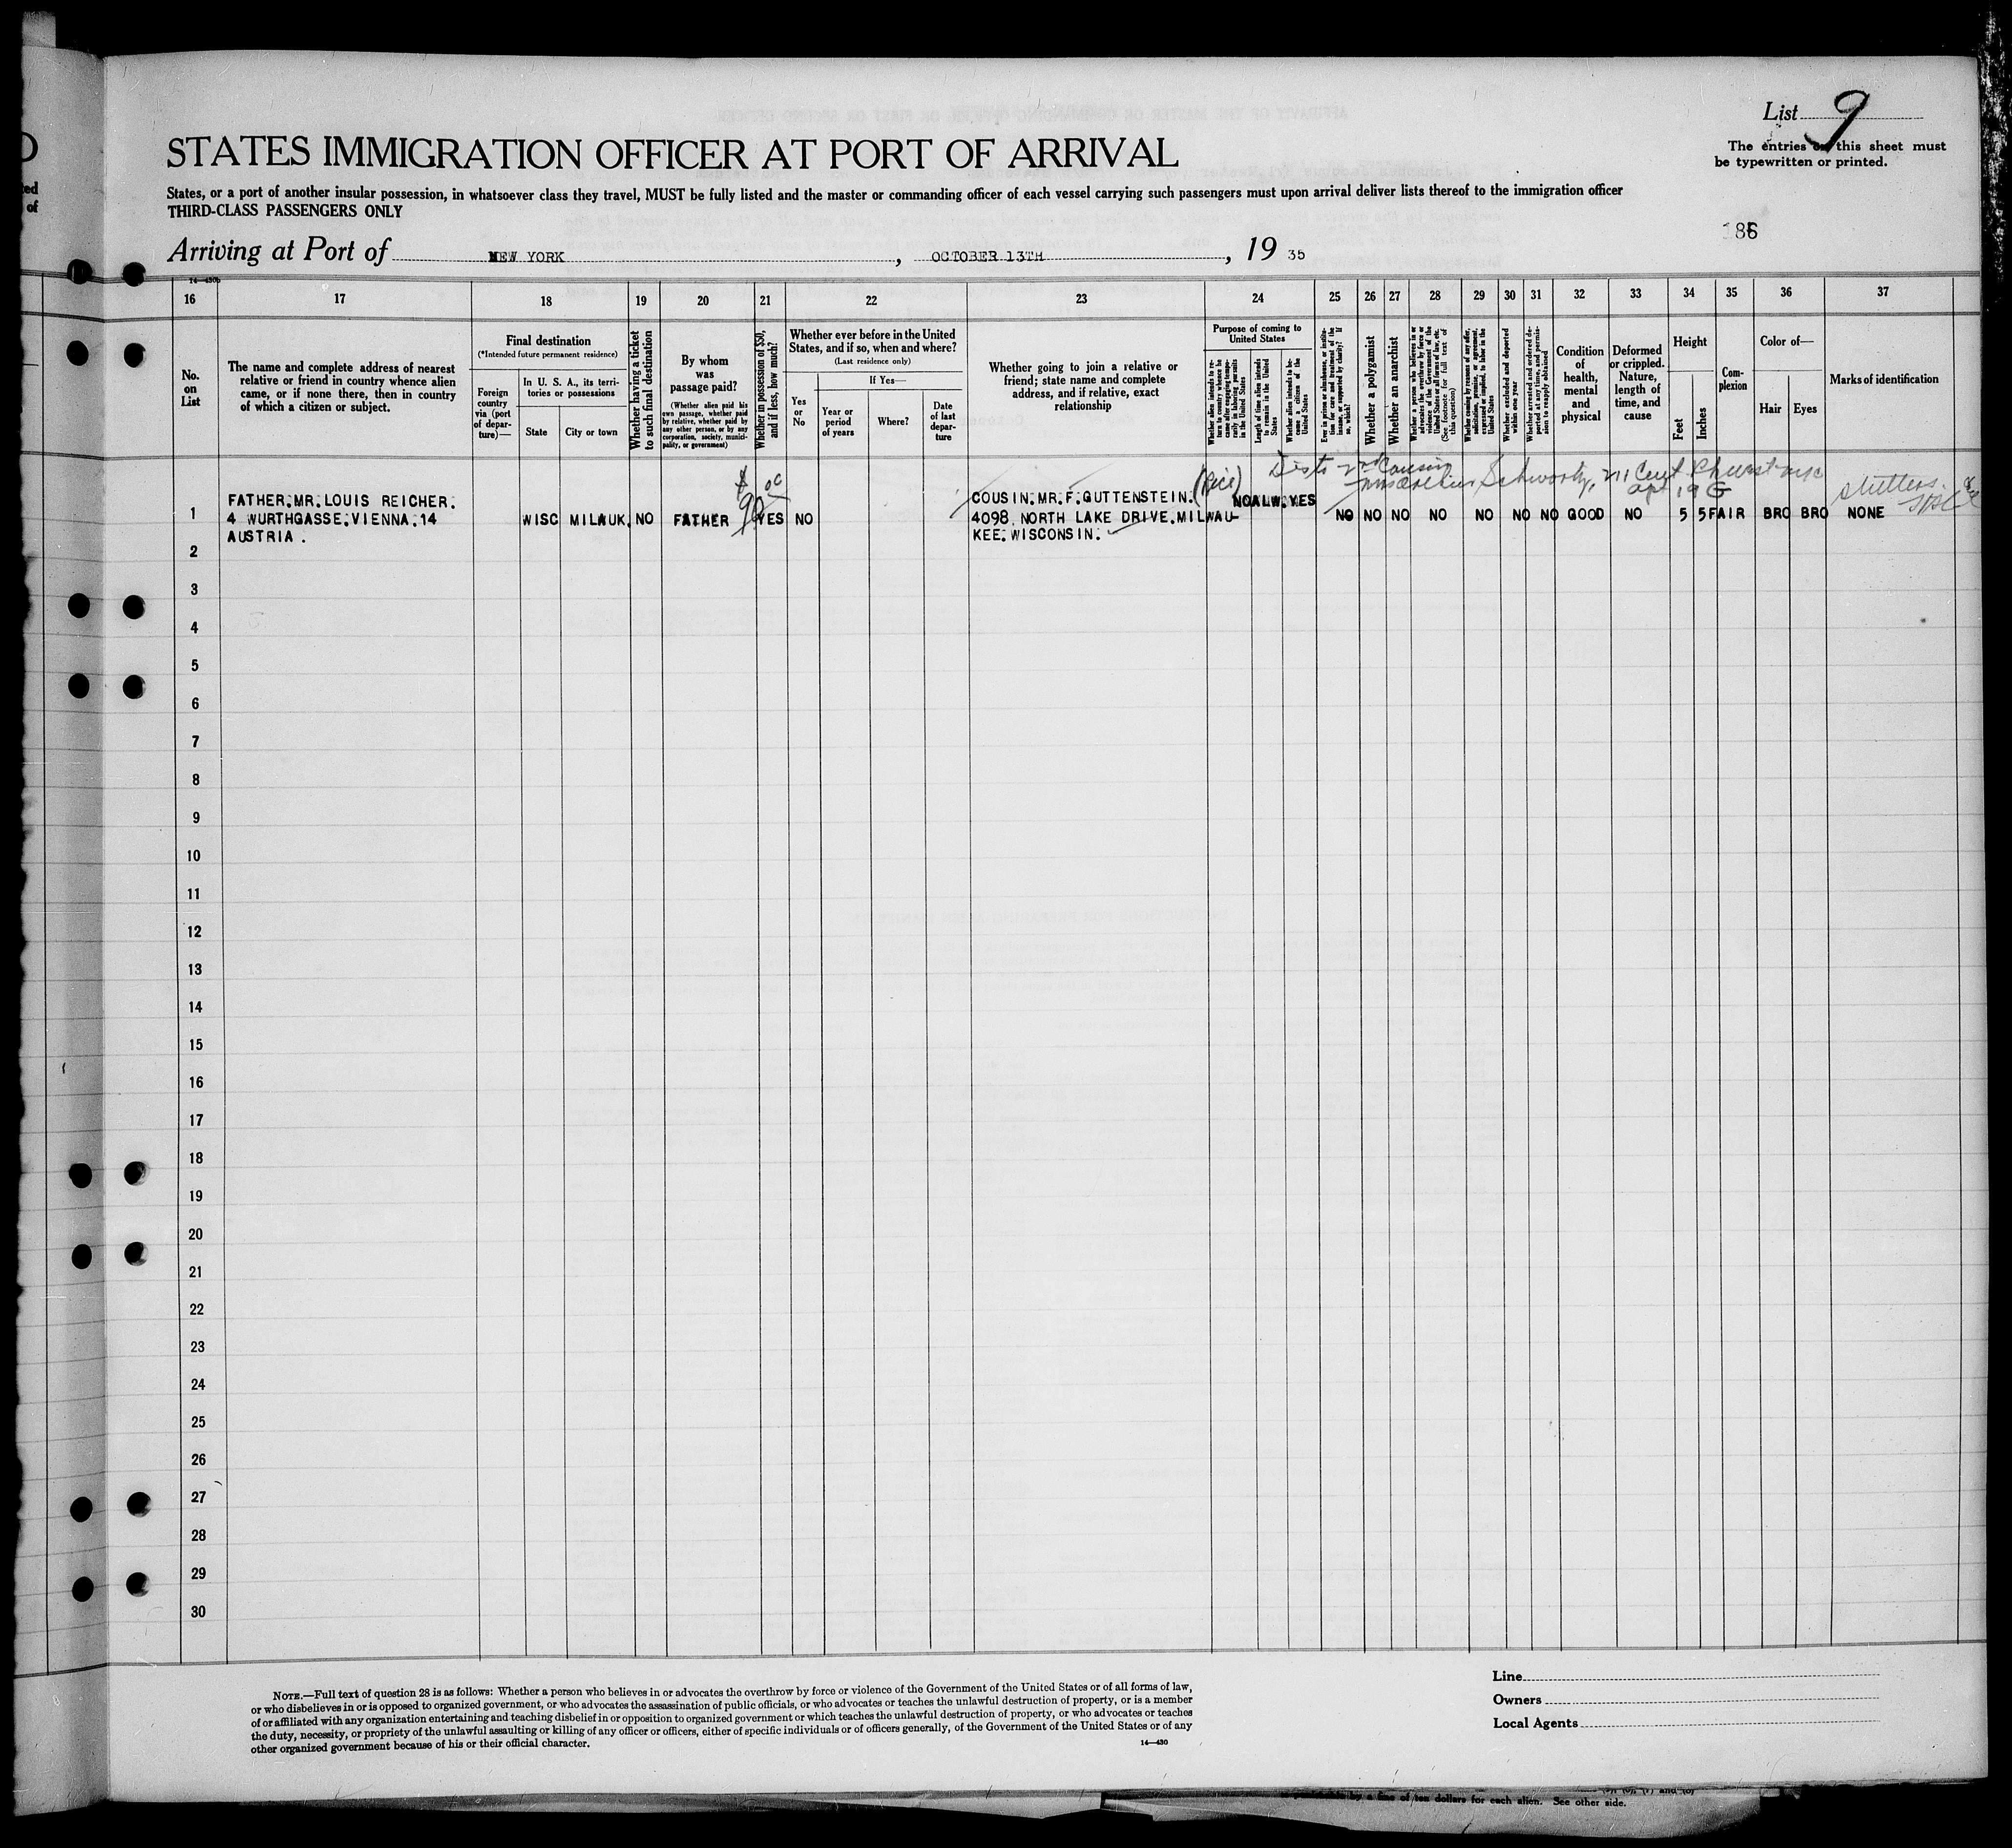 List 9
The entries on this sheet must
be typewritten or printed.
STATES IMMIGRATION OFFICER AT PORT OF ARRIVAL
States, or a port of another insular possession, in whatsoever class they travel, MUST be fully listed and the master or commanding officer of each vessel carrying such passengers must upon arrival deliver lists thereof to the immigration officer
THIRD-CLASS PASSENGERS ONLY
186
Arriving at Port of NEW YORK, OCTOBER 13TH, 19 35
14-430b
16 17 18 19 20 21 22 23 24 25 26 27 28 29 30 31 32 33 34 35 36 37
No.
on
List
The name and complete address of nearest
relative or friend in country whence alien
came, or if none there, then in country
of which a citizen or subject.
Final destination
(*Intended future permanent residence)
Foreign
country
via (port
of depar-
ture)—
In U. S. A., its terri-
tories or possessions
State
City or town
Whether having a ticket
to such final destination
By whom
was
passage paid?
(Whether alien paid his
own passage, whether paid
by relative, whether paid by
any other person, or by any
corporation, society, munici-
pality, or government)
Whether in possession of $50,
and if less, how much?
Whether ever before in the United
States, and if so, when and where?
(Last residence only)
Yes
or
No
If Yes—
Year or
period
of years
Where?
Date
of last
depar-
ture
Whether going to join a relative or
friend; state name and complete
address, and if relative, exact
relationship
Purpose of coming to
United States
Whether alien intends to re-
turn to country whence he
came after engaging tempo-
rarily in laboring pursuits
in the United States
Length of time alien intends
to remain in the United
States
Whether alien intends to be-
come a citizen of the
United States
Ever in prison or almshouse, or institu-
tion for care and treatment of the
insane, or supported by charity? If
so, which?
Whether a polygamist
Whether an anarchist
Whether a person who believes in or
advocates the overthrow by force or
violence of the Government of the
United States or all forms of law, etc.
(See footnote for full text of
this question)
Whether coming by reason of any offer,
solicitation, promise, or agreement,
expressed or implied, to labor in the
United States
Whether excluded and deported
within one year
Whether arrested and ordered de-
ported at any time, and permis-
sion to reapply obtained
Condition
of
health,
mental
and
physical
Deformed
or crippled.
Nature,
length of
time, and
cause
Height
Feet
Inches
Com-
plexion
Color of—
Hair
Eyes
Marks of identification
1
FATHER.MR.LOUIS REICHER.
4 WURTHGASSE.VIENNA.14
AUSTRIA.
WISC MILWUK. NO FATHER $90 00 YES NO
COUSIN.MR.F.GUTTENSTEIN.
4098 NORTH LAKE DRIVE.MILWAU-
KEE. WISCONSIN.
cousin
Schwartz, 211 Cent
apt 19 G
NO ALW. YES
NO NO NO NO NO NO NO GOOD NO 5 5 FAIR BRO BRO NONE
stutters.
2
3
4
5
6
7
8
9
10
11
12
13
14
15
16
17
18
19
20
21
22
23
24
25
26
27
28
29
30
NOTE.—Full text of question 28 is as follows: Whether a person who believes in or advocates the overthrow by force or violence of the Government of the United States or of all forms of law,
or who disbelieves in or is opposed to organized government, or who advocates the assassination of public officials, or who advocates or teaches the unlawful destruction of property, or is a member
of or affiliated with any organization entertaining and teaching disbelief in or opposition to organized government or which teaches the unlawful destruction of property, or who advocates or teaches
the duty, necessity, or propriety of the unlawful assaulting or killing of any officer or officers, either of specific individuals or of officers generally, of the Government of the United States or of any
other organized government because of his or their official character.
14—430
Line
Owners
Local Agents
by a fine of ten dollars for each alien. See other side.